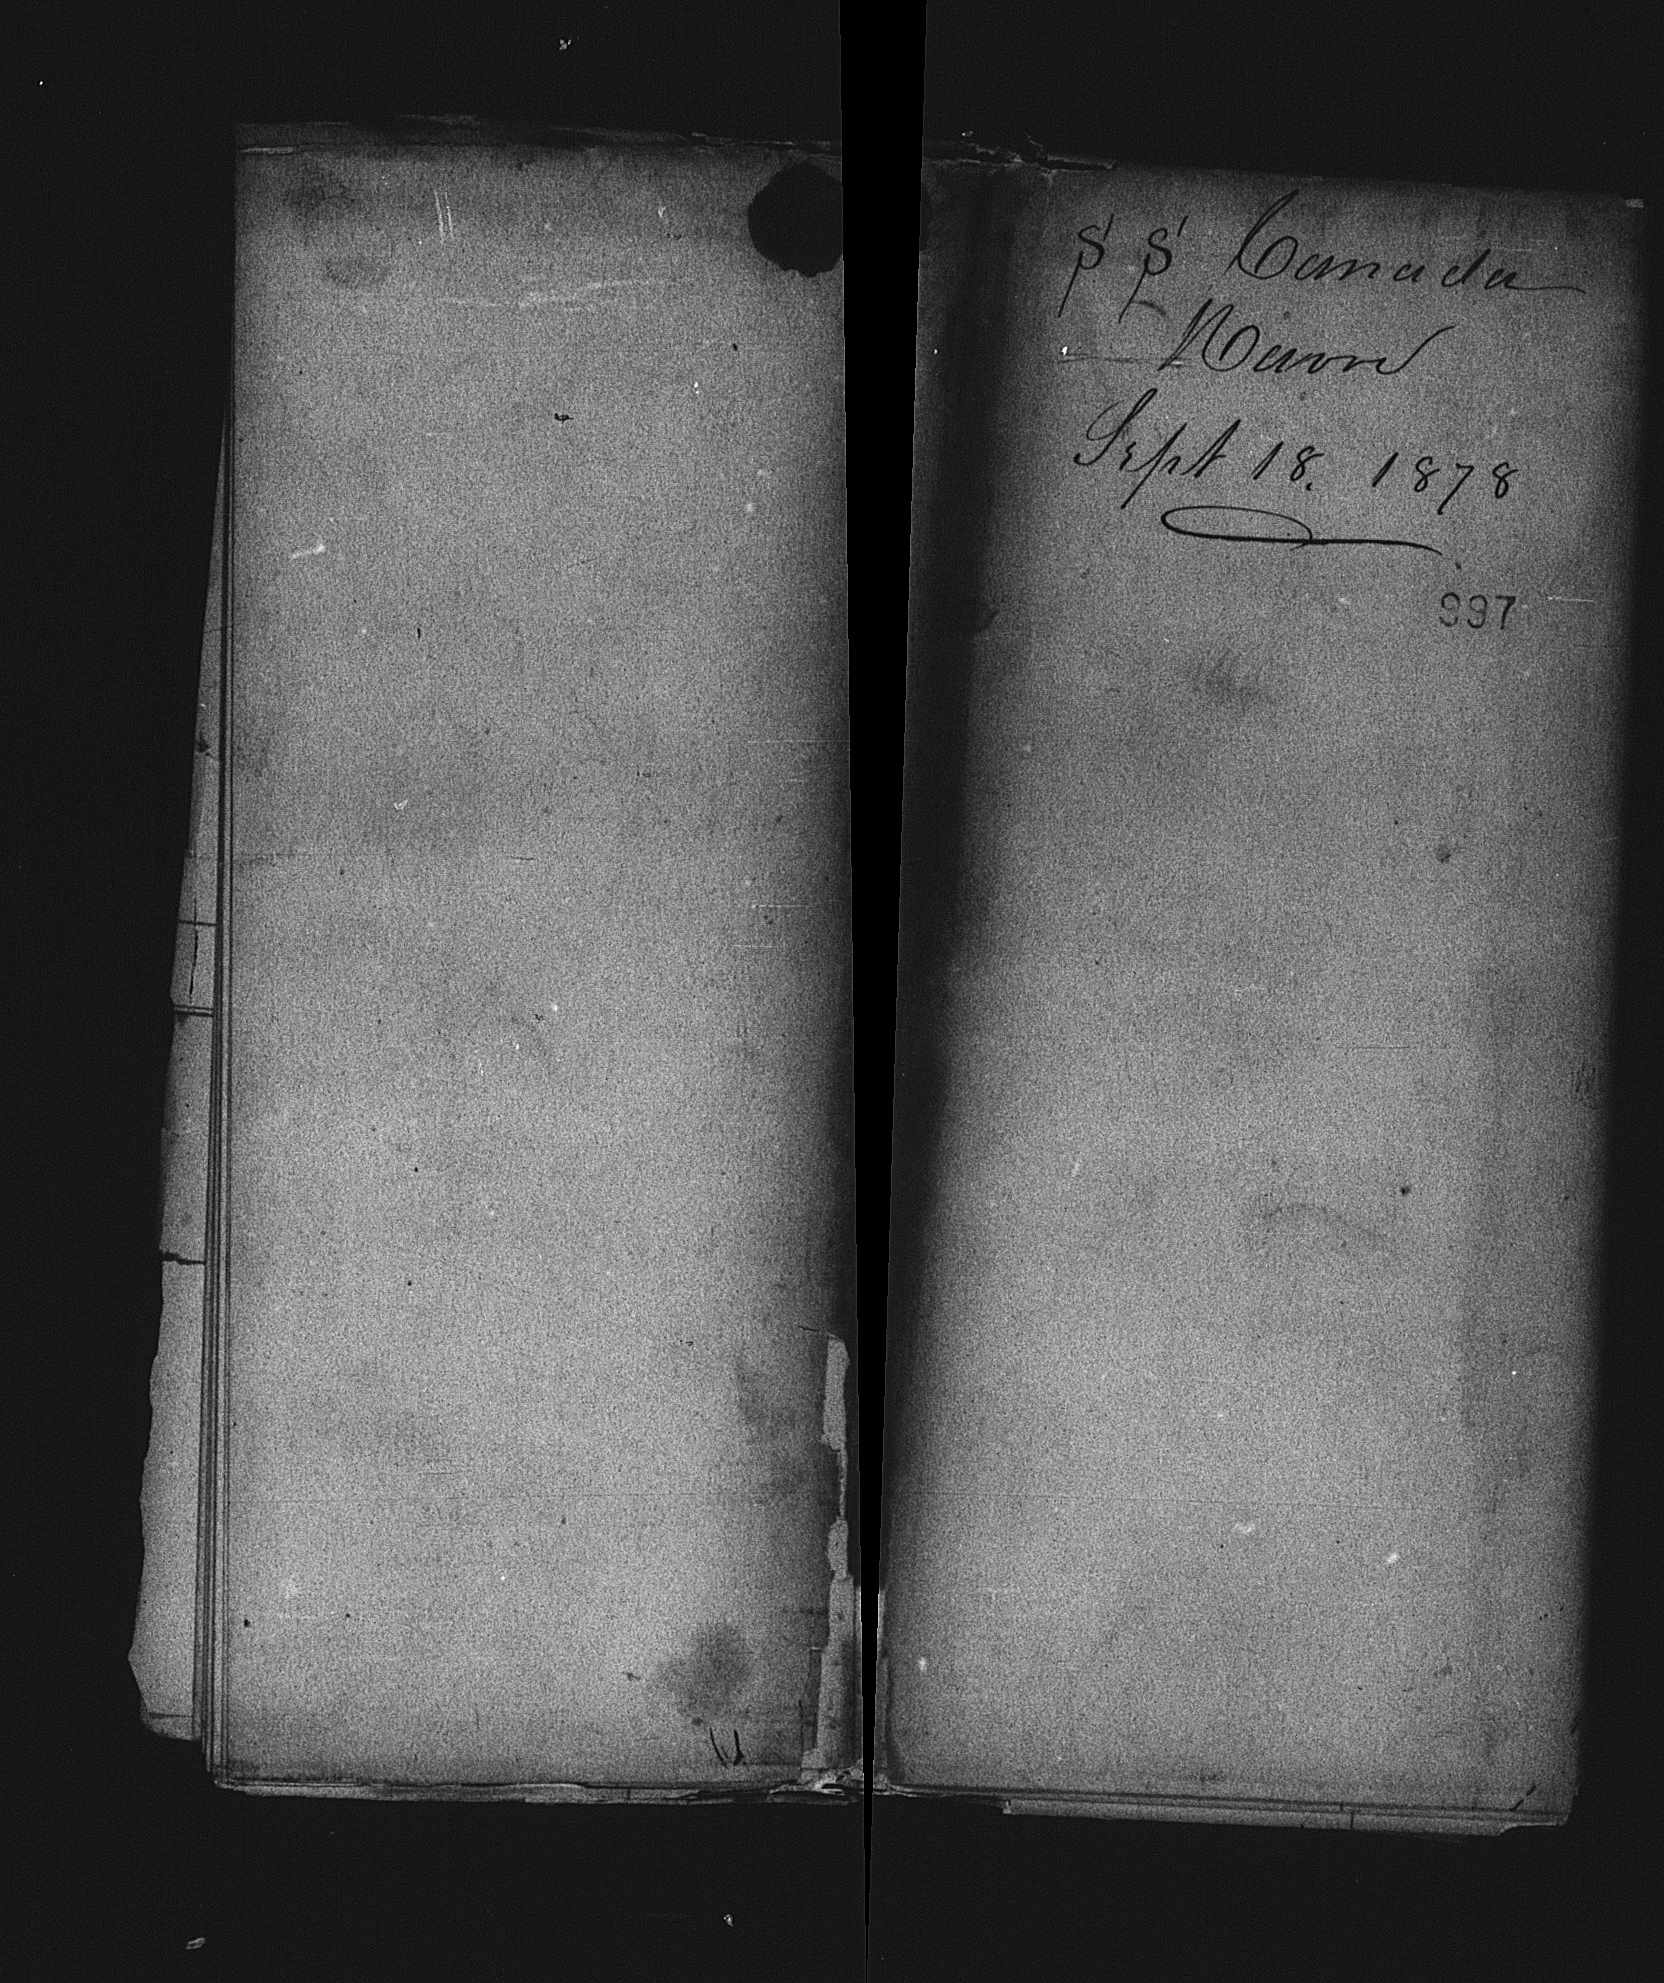 S S Canada
Havre
Sept 18. 1878
997